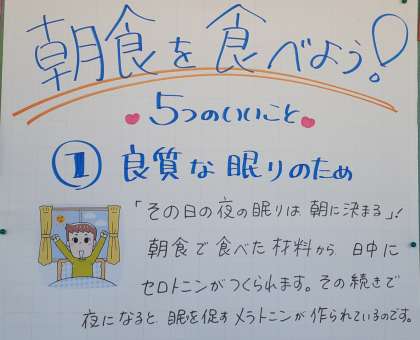 朝食を食べよう!
5つのいいこと
① 良質な眠りのため
「その日の夜の眠りは朝に決まる」!
朝食で食べた材料から 日中に
セロトニンがつくられます。その続きで
夜になると、眠を促すメラトニンが作られているのです。